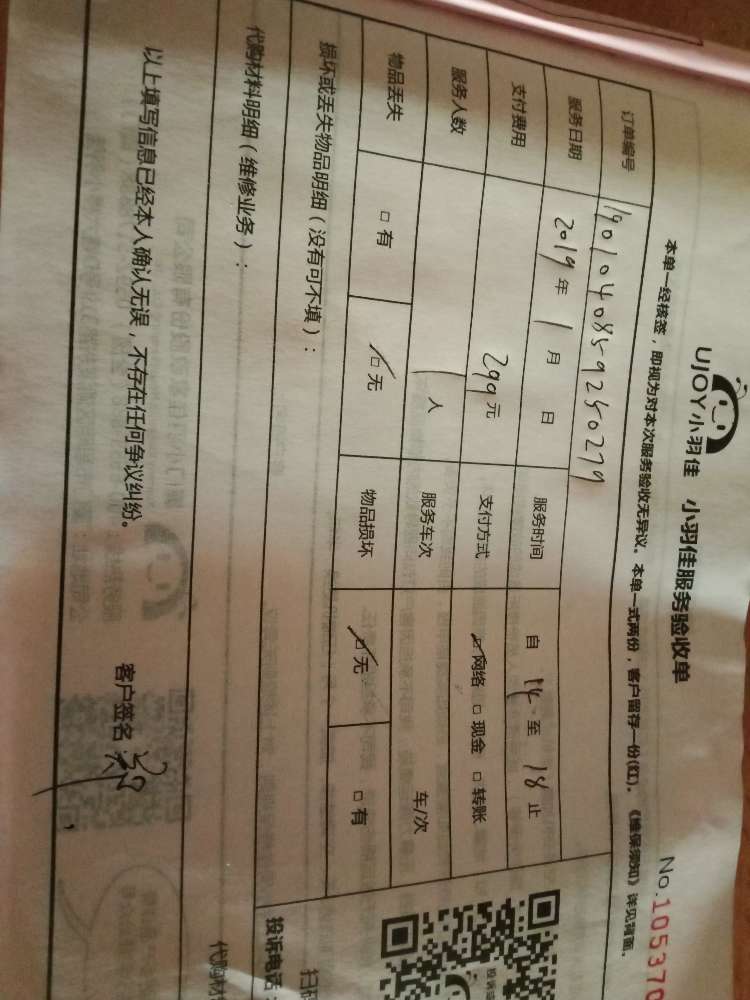 UJOY小羽佳 小羽佳服务验收单
No.105370
本单一经核签，即视为对本次服务验收无异议。本单一式两份，客户留存一份(红)。《维保须知》详见背面。
订单编号 1901040859250279
服务日期 2019年 1月 日 服务时间 自 14 至 18 止
支付费用 299元 支付方式 ☑网络 □现金 □转账
服务人数 1人 服务车次 车/次
物品丢失 □有 ☑无 物品损坏 ☑无 □有
损坏或丢失物品明细（没有可不填）：
代购材料明细（维修业务）：
投诉电话：
以上填写信息已经本人确认无误，不存在任何争议纠纷。
客户签名：